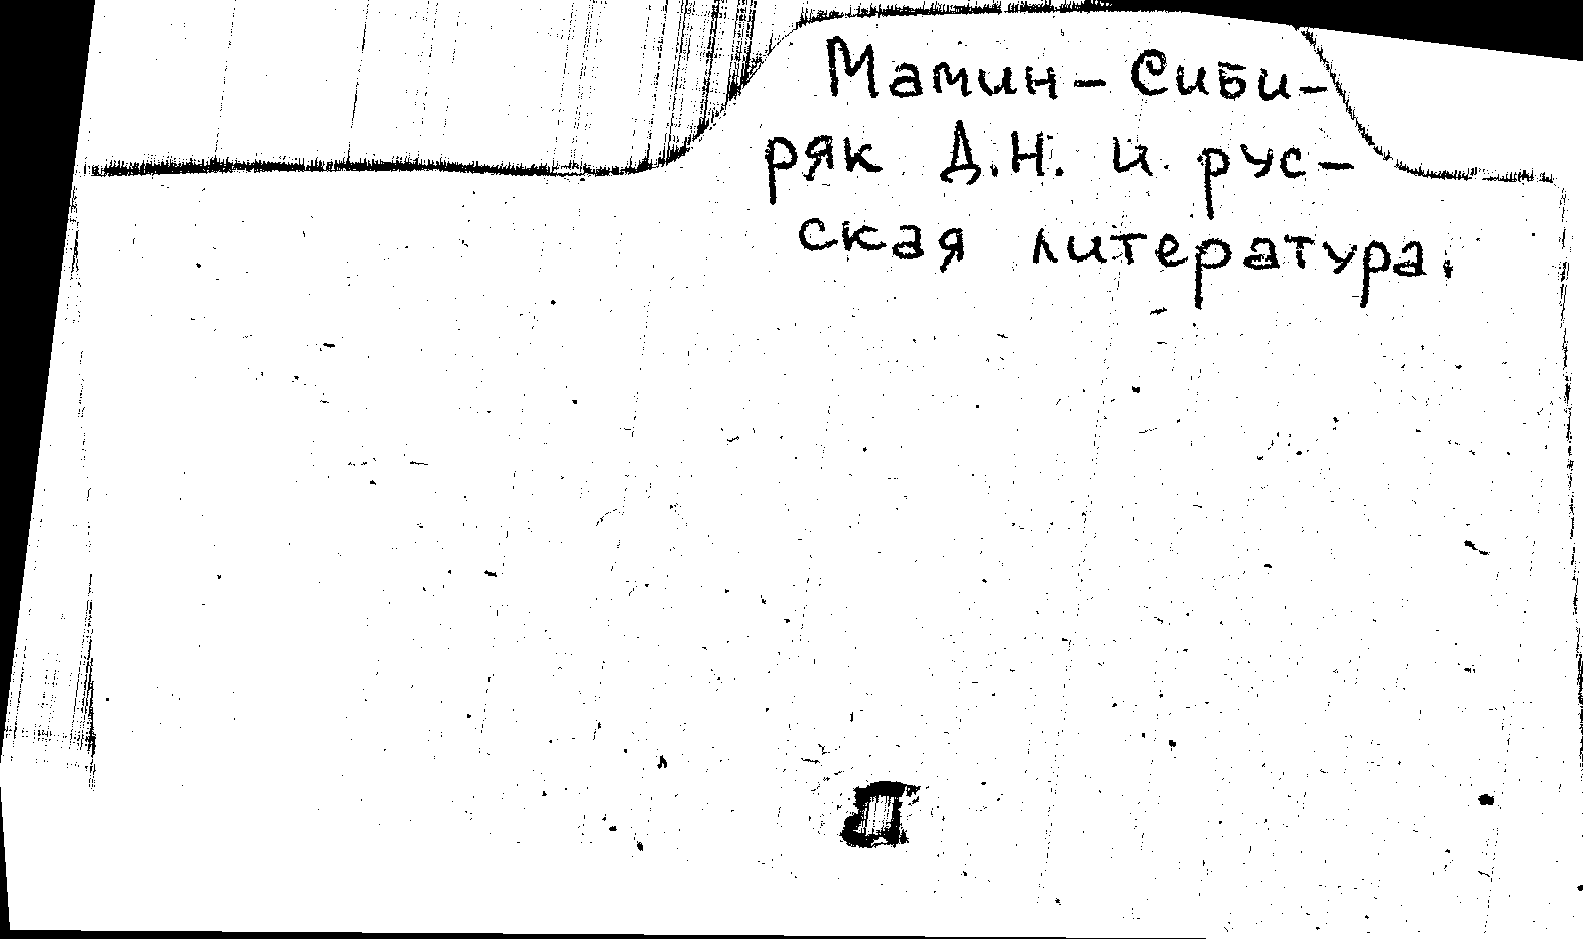 Мамин - Сиби-
ряк Д.Н. и рус-
ская литература.